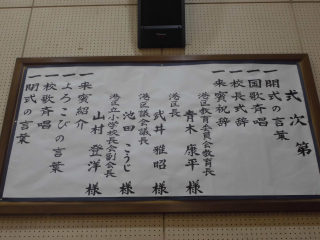 式次第
一 開式の言葉
一 国歌斉唱
一 校長式辞
一 来賓祝辞
港区教育委員会教育長
青木 康平 様
港区長
武井 雅昭 様
港区議会議長
池田 こうじ 様
港区立小学校長会副会長
山村 登洋 様
一 来賓紹介
一 よろこびの言葉
一 校歌斉唱
一 閉式の言葉